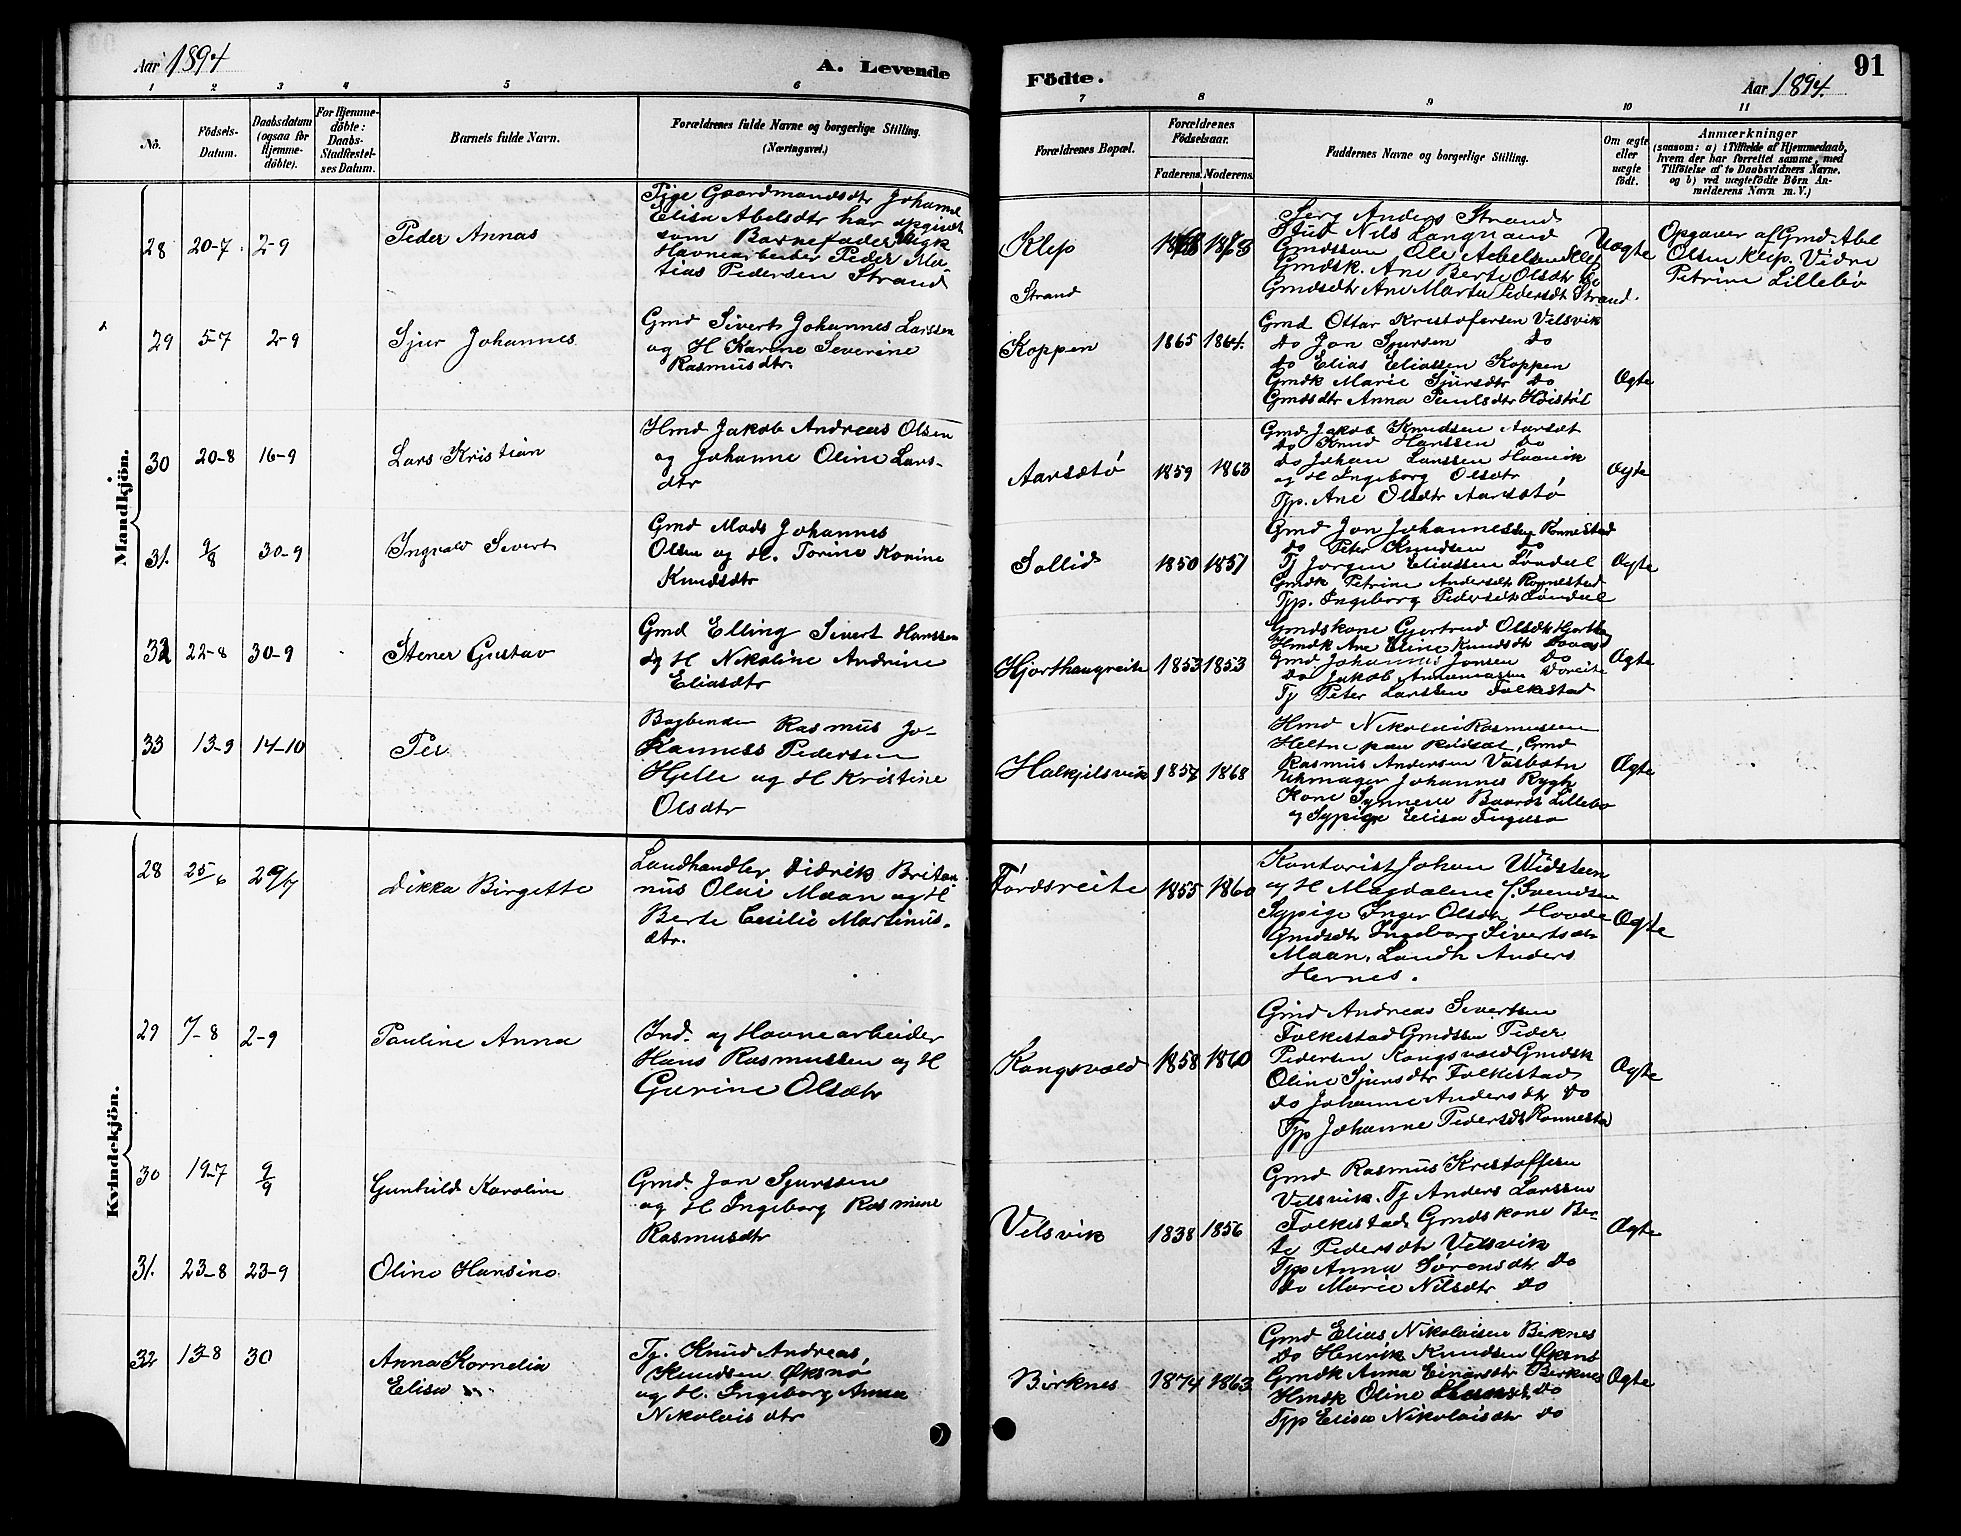 Aar 1894
A. Levende
1 2 3 4 5 6
No.
Födsels-
Datum.
Daabsdatum
(ogsaa for
Hjemme-
döbte).
For Hjemme-
döbte:
Daabs-
Stadfæstel-
ses Datum.
Barnets fulde Navn.
Forældrenes fulde Navne og borgerlige Stilling.
(Næringsvei.)
Mandkjön.
28 20-7 2-9 Peder Annas
Pige Gaardmandsdtr Johanne
Elisa Abelsdtr har opgivet
som Barnefader Ugk
Havnearbeider Peder Ma-
tias Pedersen Strand
29 5-7 2-9 Sjur Johannes
Gmd Sivert Johannes Larssen
og H Karine Severine
Rasmusdtr.
30 20-8 16-9 Lars Kristian
Hmd Jakob Andreas Olsen
og Johanne Oline Lars-
dtr
31. 9/8 30-9 Ingvald Sivert
Gmd Mads Johannes
Olsen og H. Torine Karine
Knudsdtr
32 22-8 30-9 Stener Gustav
Gmd Elling Sivert Hanssen
og H Nikoline Andrine
Eliasdtr
33 13-9 14-10 Per
Bogbinder Rasmus Jo-
hannes Pedersen
Hjelle og H Kristine
Olsdtr
Kvindekjön.
28 25/6 29/7 Dikka Birgette
Landhandler Didrik Britan-
nus Olai Maan og H
Berte Cesilie Martinus-
dtr.
29 7-8 2-9 Pauline Anna
Ind. og Havnearbeider
Hans Rasmussen og H
Gurine Olsdtr
30 19-7 9/9 Gunhild Karoline
Gmd. Jon Sjurssen
og H Ingeborg Rasmine
Rasmusdtr
31. 23-8 23-9 Oline Hansine
32 13-8 30 Anna Kornelia
Elisa
Tj. Knud Andreas
Knudsen Øksnø
og H. Ingeborg Anna
Nikolaisdtr
Födte.
91
Aar 1894.
7 8 9 10 11
Forældrenes Bopæl.
Forældrenes
Födselsaar.
Faderens. Moderens.
Faddernes Navne og borgerlige Stilling.
Om ægte
eller
uægte
födt.
Anmærkninger
(saasom: a) i Tilfælde af Hjemmedaab,
hvem der har forrettet samme, med
Tilföielse af to Daabsvidners Navne.
og b) ved uægtefödte Börn An-
melderens Navn m. V.)
Klep
Strand
Serg Anders Strand
Stud Nils Langnand
Gmdssøn Ole Abelsen Klep
Gmdsk. Ane Berte Olsdtr do
Gmdsdtr Ane Marta Pedersdt Strand.
Uægte
Opgaver af Gmd Abel
Olsen Klep. Vidne
Petrine Lillebø
Koppen 1865 1864.
Gmd Ottar Kristofersen Velsvik
do Jon Sjursen do
do Elias Eliassen Koppen
Gmdk Marie Sjursdtr do
Gmdsdtr Anna Paulsdtr Høistøl
Ægte
Aarsætø 1859 1863
Gmd Jakob Knudsen Aarsæt
do Knud Hanssen do
do Johan Larssen Haavik
og H Ingeborg Olsdtr
Tjp. Ane Olsdtr Aarsætø
Ægte
Sollid 1850 1857
Gmd Jon Johannessen Rønnestad
do Peter Knudsen do
Tj Jørgen Eliassen Løndal
Gmdk Petrine Andersdtr Rønnestad
Tjp. Ingeborg Pedersdtr Løndal
Ægte
Hjorthaugreite 1853 1853
Gmdskone Gjertrud Olsdtr
Hmdk Ane Oline Knudsdtr
Gmd Johannes Jonsen do
do Jakob
Tj Peter Larssen Folkestad
Ægte
Halkjelsvik 1857 1868
Hmd Nikolai Rasmussen
Heltne paa Rødsæt, Gmd
Rasmus Andersen Vasbotn
Urmager Johannes Rygh
Kone Synneve Baards Lillebø
og Sypige Elisa
Ægte
Førdsreite 1855 1860
Kontorist Johan Widsteen
og H Magdalene f. Svendsen
Sypige Inger Olsdtr Hovde
Gmdsdtr Ingeborg Sivertsdtr
Maan. Landh Anders
Hernes.
Ægte
Kongsvold 1858 1860
Gmd Andreas Sivertsen
Folkestad Gmdssøn Peder
Pedersen Kongsvold Gmdsk
Oline Sjursdtr Folkestad
do Johanne Andersdtr do
Tjp Johanne Pedersdtr Rønnestad
Ægte
Velsvik 1838 1856
Gmd Rasmus Kristoffersen
Velsvik. Tj Anders Larssen
Folkestad Gmdskone Ber-
te Pedersdtr Velsvik
Tjp Anna Sørensdtr do
do Marie Nilsdtr do
Ægte
Birknes 1874 1863
Gmd Elias Nikolaisen Birknes
do Henrik Knudsen Øksnø
Gmdk Anna Einarsdtr Birknes
Hmdk Oline do
Tjp Elisa Nikolaisdtr do
Ægte